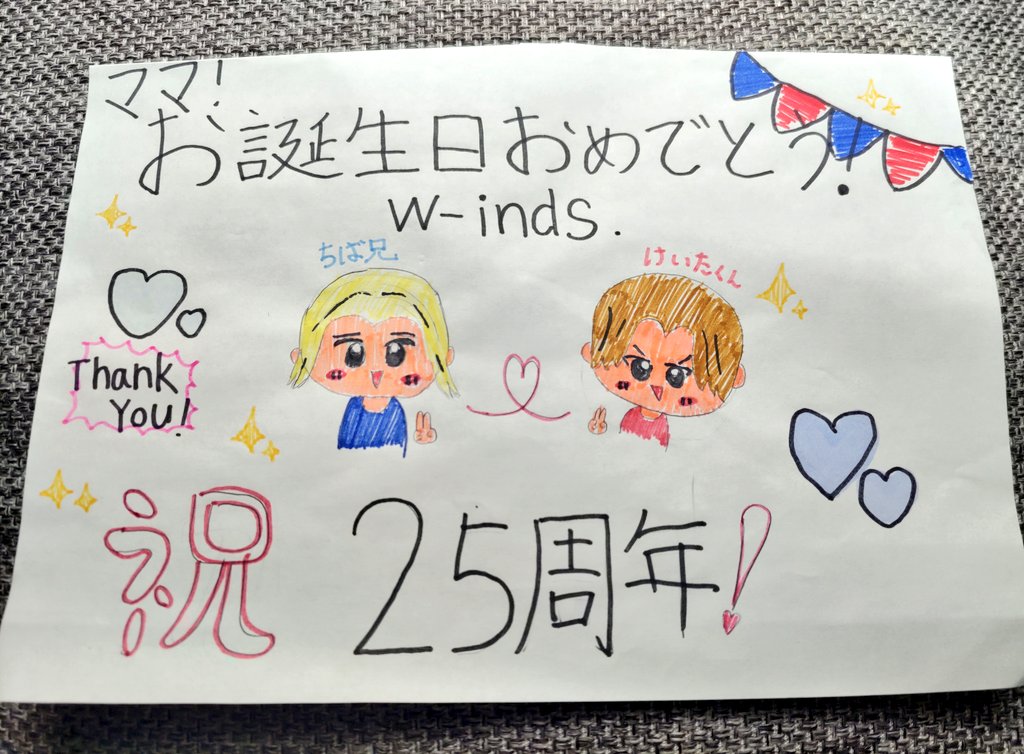 ママ!
お誕生日おめでとう!
w-inds.
ちば兄
けいたくん
Thank
You!
祝 25周年!